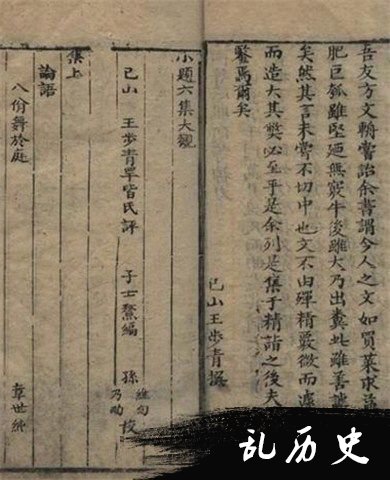 吾友方文輈嘗詒余書謂今人之文如買菜求
肥巨瓠雖堅廼無竅牛後雖大乃出糞此雖善
矣然其言未嘗不切中也文不由殫精嚴微而遽
而造大其獘必至乎是余列是集于精詣之後夫
鑒焉爾矣
已山王步青撰
小題六集大觀
已山 王步青罕皆氏評 子士鰲編 孫 維甸 乃昀 校
集上
論語
八佾舞於庭 章世純
乱历史